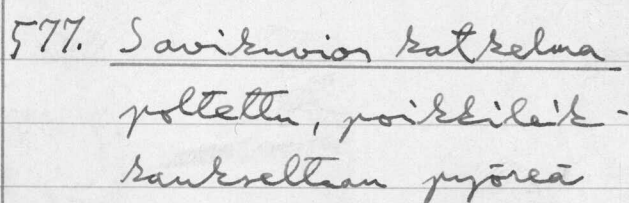 577. Savikuvion katkelma
poltettu, poikkileik-
kaukseltaan pyöreä